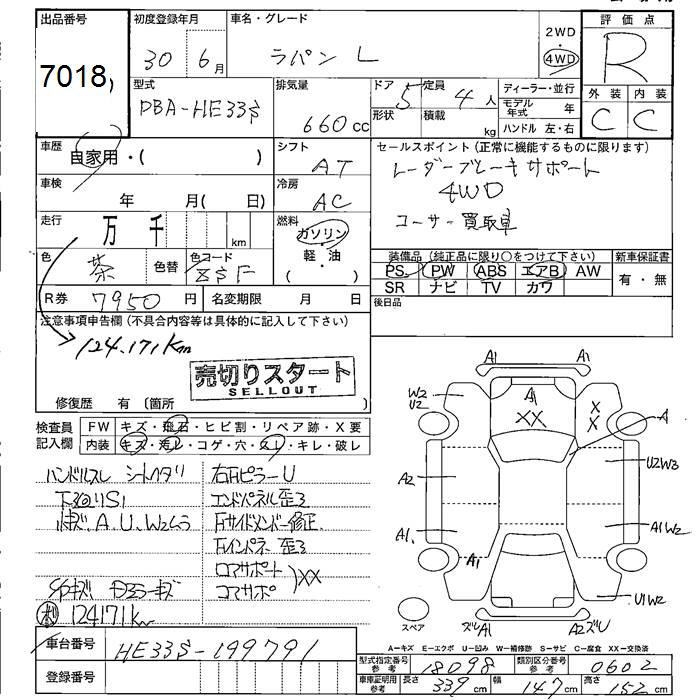 出品番号 初度登録年月 車名・グレード 評価点
7018 30年 6月 ラパン L 2WD ・ 4WD R
型式 排気量 ドア 定員 ディーラー・並行 外装 内装
DBA-HE33S 660cc 5 4人 モデル年式 年 C C
形状 積載 kg ハンドル 左・右
車歴 シフト セールスポイント (正常に機能するものに限ります)
自家用・( ) AT レーダーブレーキサポート
車検 冷房 4WD
年 月( 日) AC ユーザー買取車
走行 燃料
万 千 km ガソリン・軽・油
装備品 (純正品に限り○をつけて下さい) 新車保証書
色 色替 色コード PS PW ABS エアB AW 有・無
茶 Z5F SR ナビ TV カワ
R券 7950円 名変期限 月 日 後日品
注意事項申告欄 (不具合内容等は具体的に記入して下さい)
124,171km
売切りスタート
SELLOUT
修復歴 有 (箇所 )
検査員記入欄 FW キズ・飛石・ヒビ割・リペア跡・X要
内装 キズ・汚レ・コゲ・穴・スレ・キレ・破レ
ハンドルスレ シートヘタリ 右Fピラー U
下廻りS1 エンドパネル歪ミ
A.U.W2 Fサイドメンバー修正
Fインパネ 歪ミ
コアサポート
コアサポ XX
124171km
車台番号 HE33S-199791
登録番号
A1 A1
W2 U2 A1 XX X X A
A2 U2W3
A1 A1W2
A1 U1W2
スペア ズレA1 A2ズU
A-キズ E-エクボ U-凹み W-補修跡 S-サビ C-腐食 XX-交換済
型式指定番号 参考 18098 類別区分番号 参考 0602
車庫証明用 参考 長さ 339cm 幅 147cm 高さ 152cm